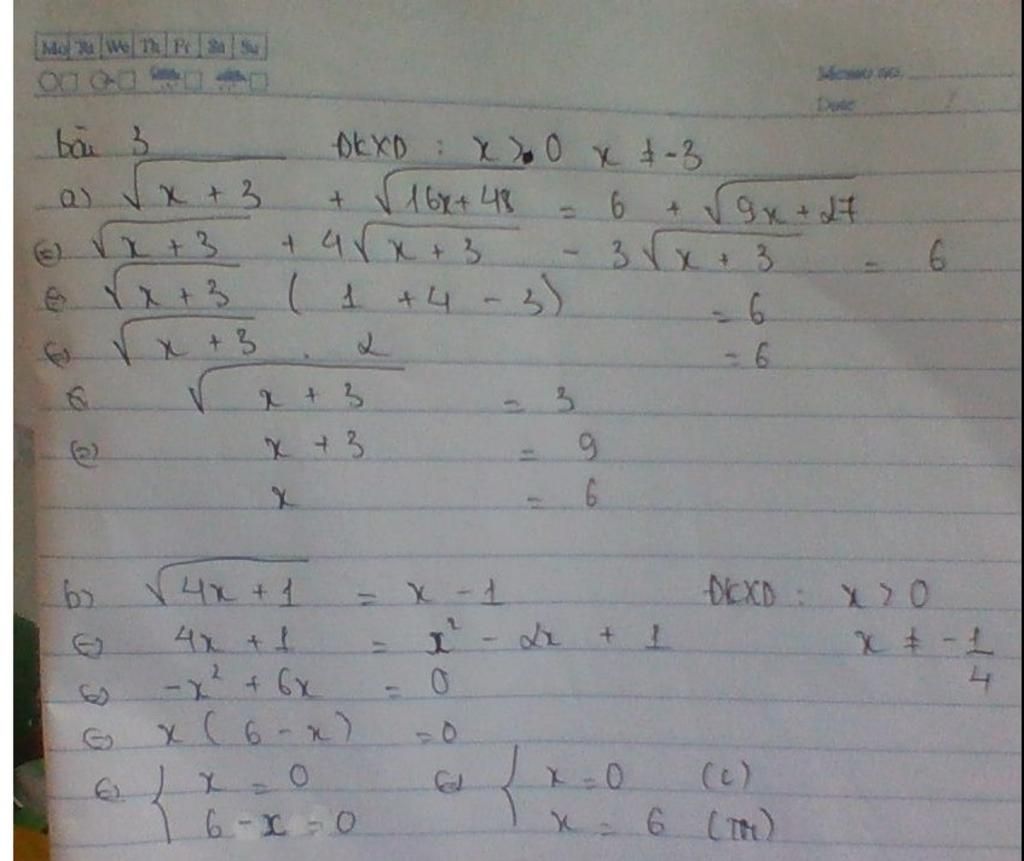 Mo Tu We Th Fr Sa Su
Memo no.
Date /
bài 3 ĐKXĐ : x > 0 x ≠ -3
a) √(x + 3) + √(16x + 48) = 6 + √(9x + 27)
⇔ √(x + 3) + 4√(x + 3) - 3√(x + 3) = 6
⇔ √(x + 3) ( 1 + 4 - 3) = 6
⇔ √(x + 3) . 2 = 6
⇔ √(x + 3) = 3
⇔ x + 3 = 9
x = 6
b) √(4x + 1) = x - 1 ĐKXĐ : x > 0
⇔ 4x + 1 = x² - 2x + 1 x ≠ -1/4
⇔ -x² + 6x = 0
⇔ x ( 6 - x) = 0
⇔ { x = 0 ⇔ { x = 0 (L)
6 - x = 0 x = 6 (TM)